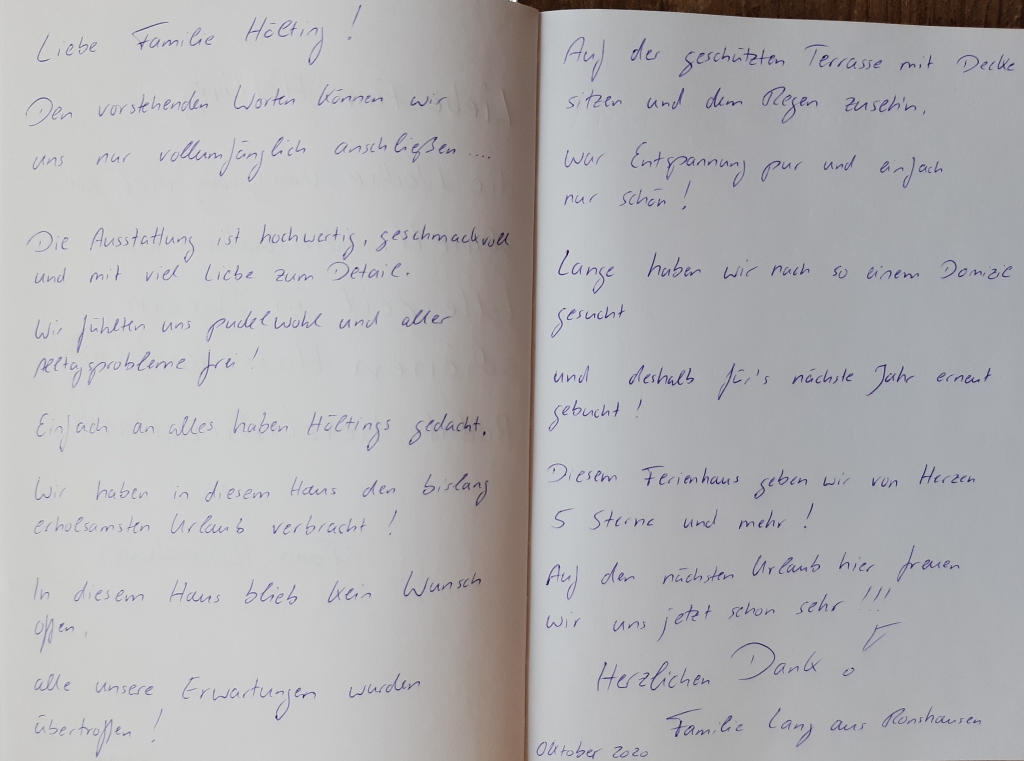 Liebe Familie Hölting!
Den vorstehenden Worten können wir
uns nur vollumfänglich anschließen....
Die Ausstattung ist hochwertig, geschmackvoll
und mit viel Liebe zum Detail.
Wir fühlten uns pudelwohl und aller
Alltagsprobleme frei!
Einfach an alles haben Höltings gedacht.
Wir haben in diesem Haus den bislang
erholsamsten Urlaub verbracht!
In diesem Haus blieb kein Wunsch
offen,
alle unsere Erwartungen wurden
übertroffen!
Auf der geschützten Terrasse mit Decke
sitzen und dem Regen zuseh'n,
war Entspannung pur und einfach
nur schön!
Lange haben wir nach so einem Domizil
gesucht
und deshalb für's nächste Jahr erneut
gebucht!
Diesem Ferienhaus geben wir von Herzen
5 Sterne und mehr!
Auf den nächsten Urlaub hier freuen
wir uns jetzt schon sehr!!!
Herzlichen Dank!
Familie Lang aus Ronshausen
Oktober 2020